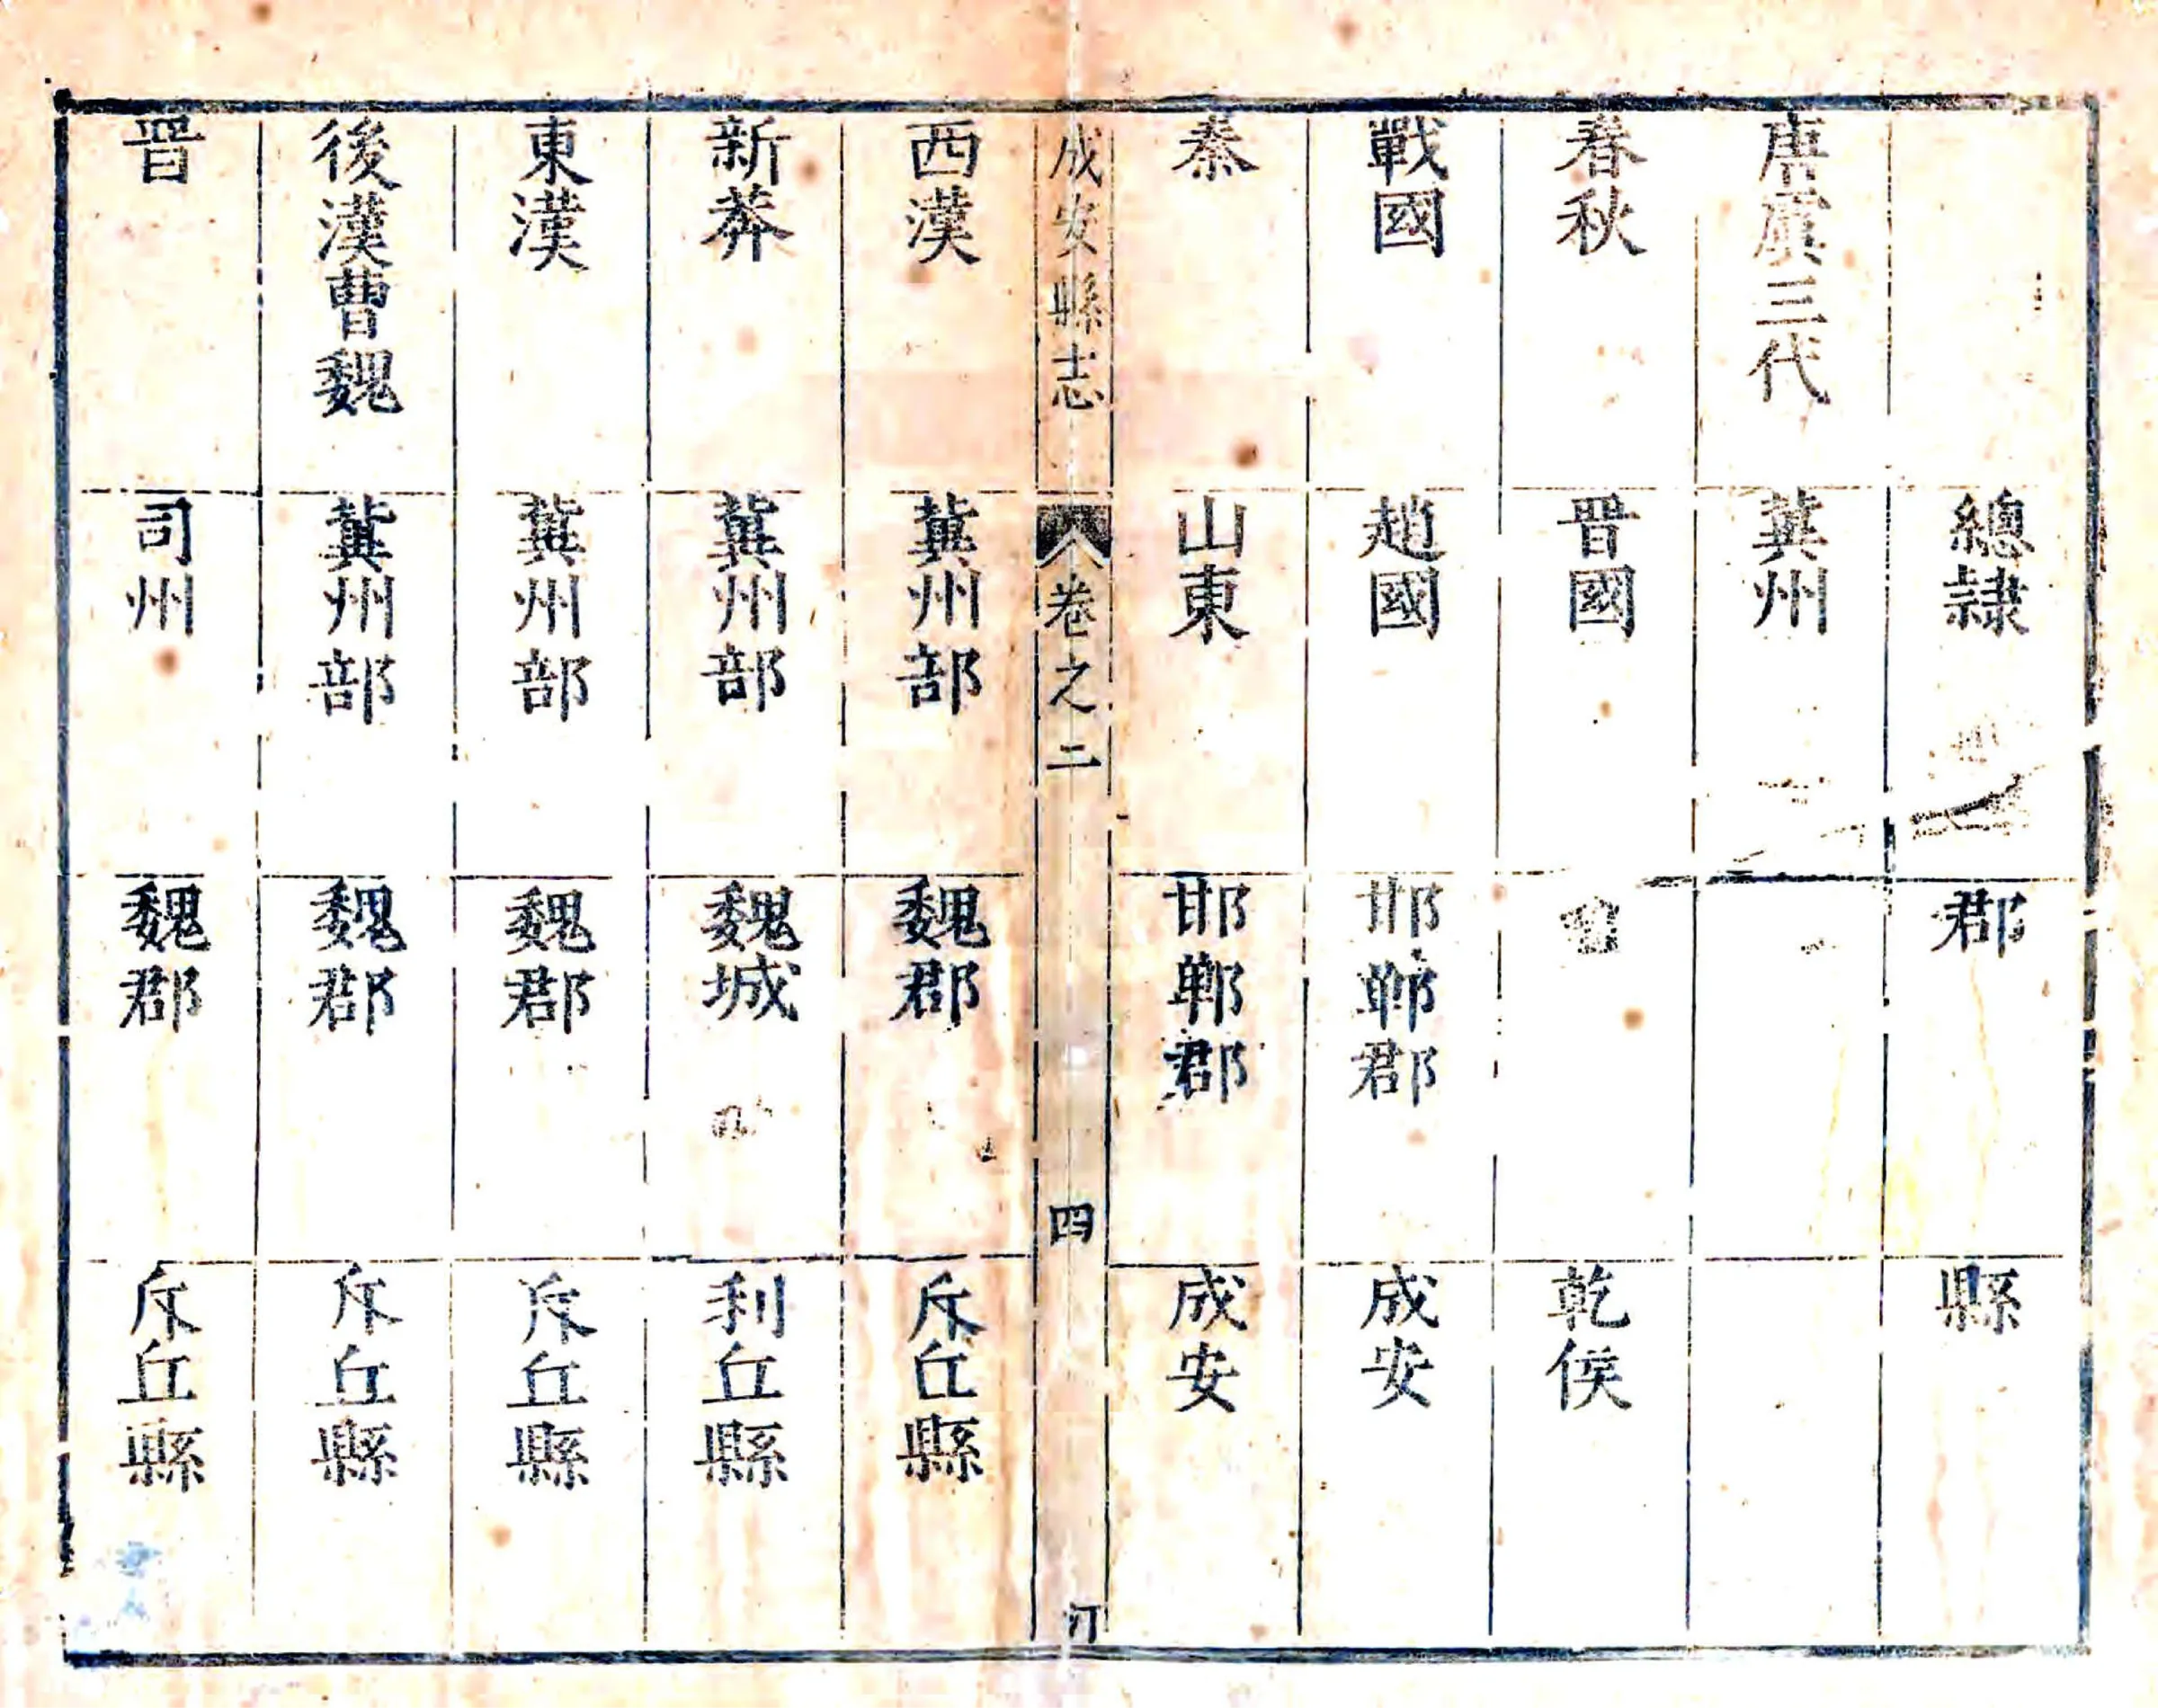 總隷
郡
縣
唐虞三代
冀州
春秋
晉國
乾侯
戰國
趙國
邯鄲郡
成安
秦
山東
邯鄲郡
成安
成安縣志
卷之二
四
西漢
冀州部
魏郡
斥丘縣
新莽
冀州部
魏城
利丘縣
東漢
冀州部
魏郡
斥丘縣
後漢曹魏
冀州部
魏郡
斥丘縣
晉
司州
魏郡
斥丘縣